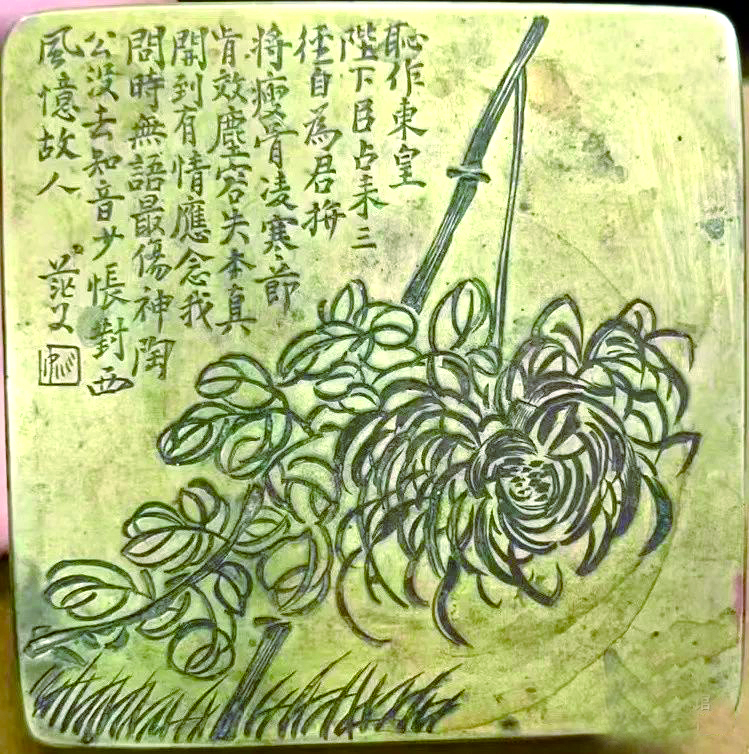 恥作東皇
陛下臣占来三
徑自為君拚
将瘦骨凌寒節
肯效塵容失本真
開到有情應念我
問時無語最傷神陶
公沒去知音少悵對西
風憶故人
茫父